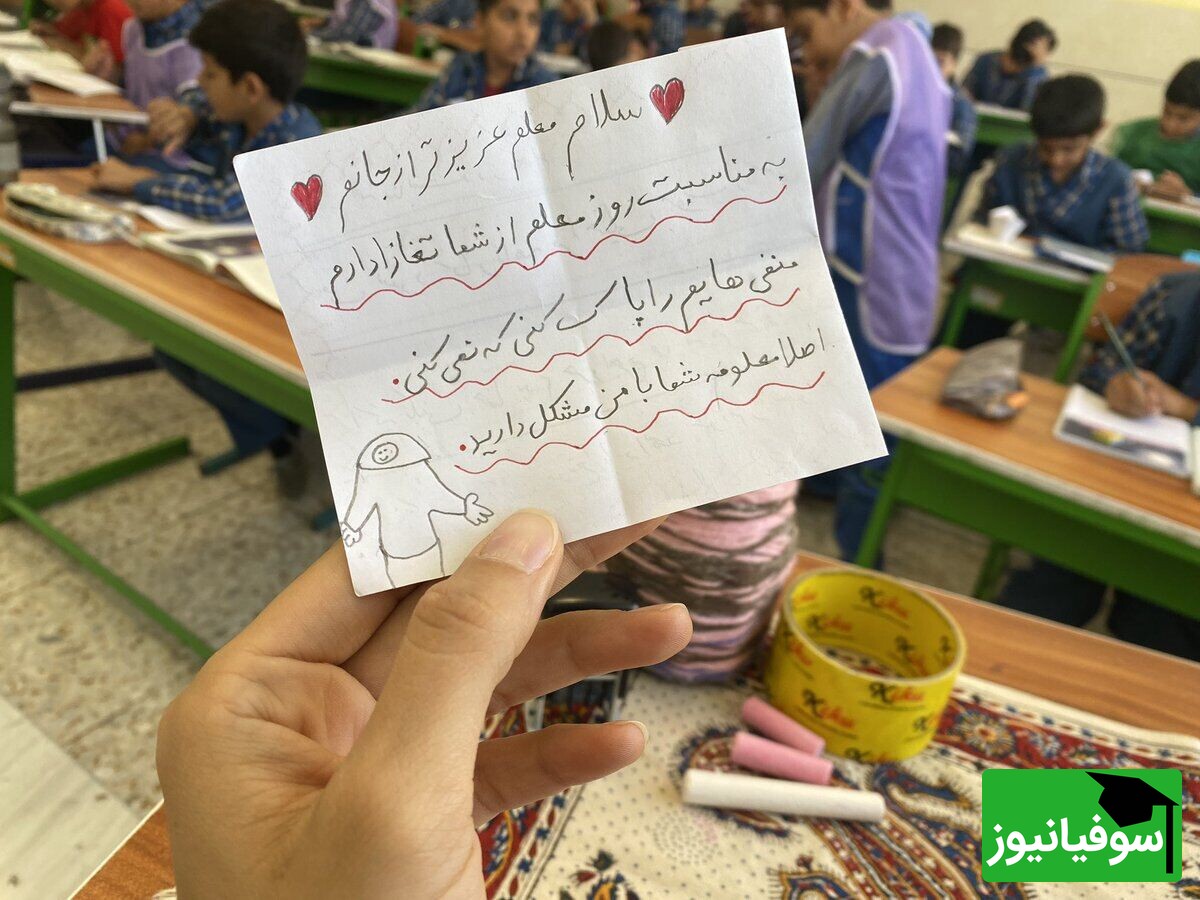 سلام معلم عزیز تر از جانم
به مناسبت روز معلم از شما تغازا دارم
منفی هایم را پاک کنی که نمی کنی.
اصلا معلومه شما با من مشکل دارید.
سوفیانیوز